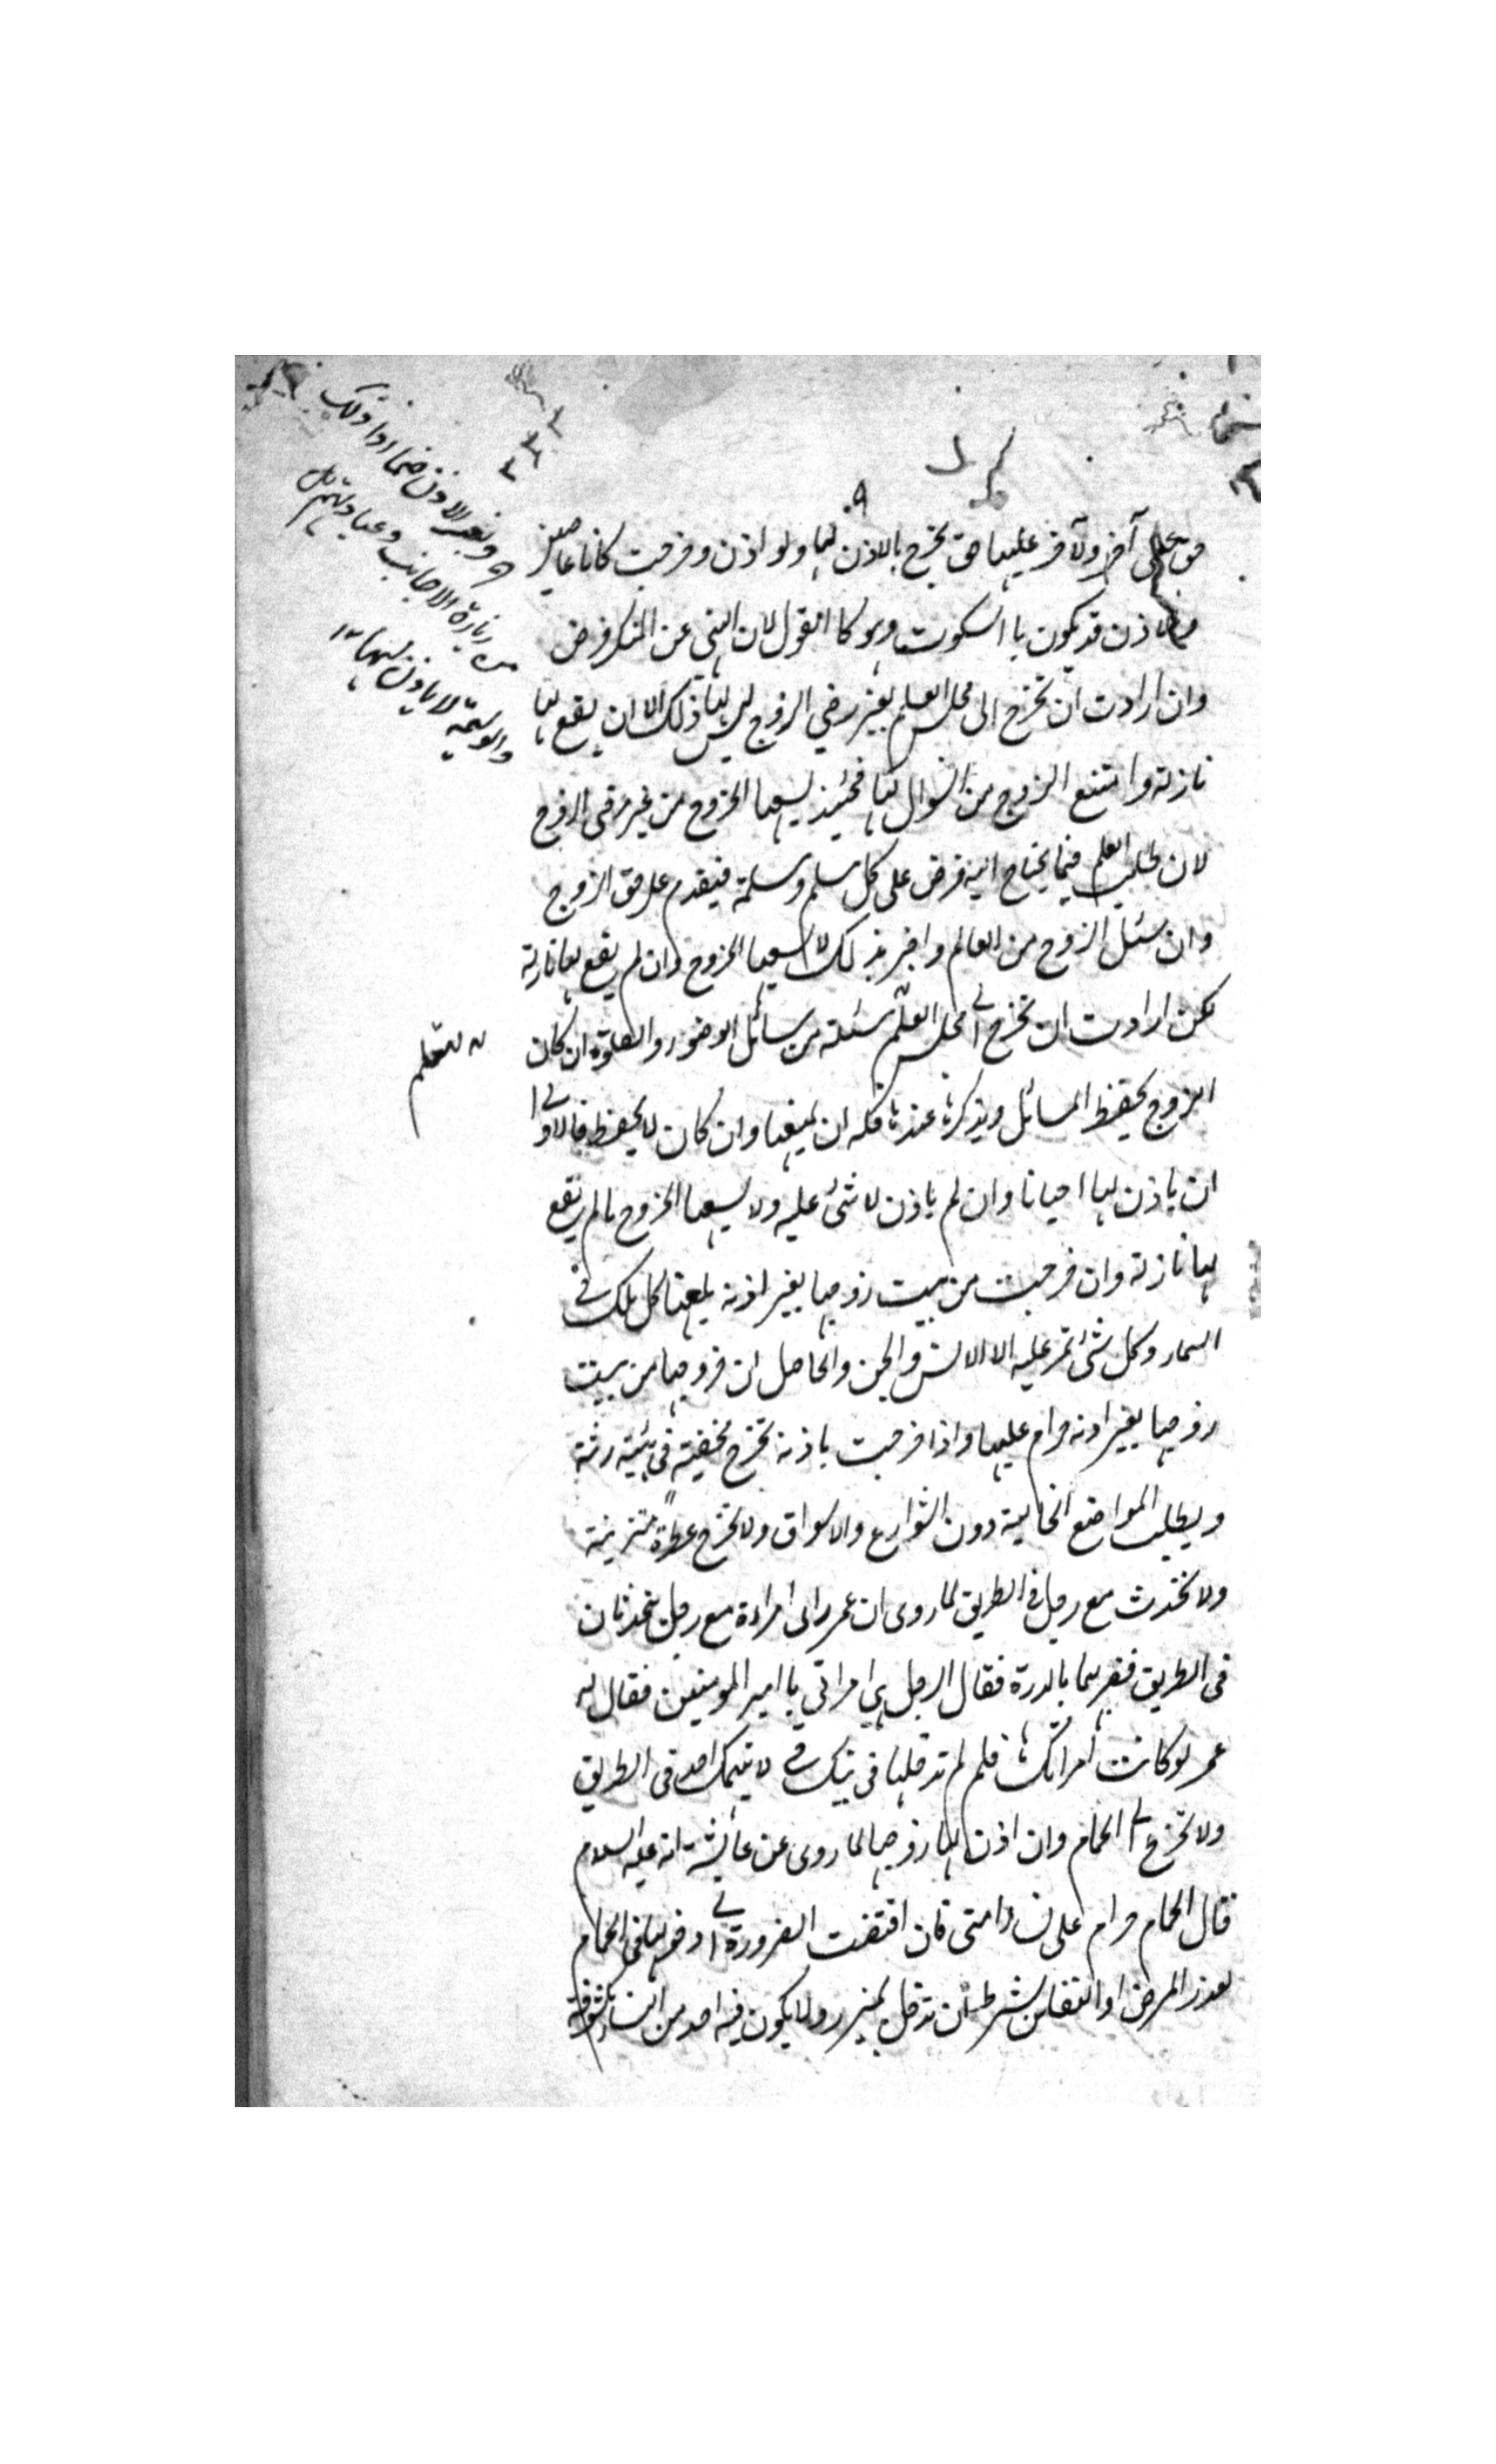 حق على آخر ولآخر عليها حق تخرج بالاذن لها ولو اذن وخرجت كانا عاصيين
والاذن قد يكون با السكوت وهو كا القول لان النهي عن المنكر فرض
وان ارادت ان تخرج الى مجلس العلم بغير رضي الزوج ليس لها ذلك الا ان يقع لها
نازلة وامتنع الزوج من السوال لها فحينئذ يسعها الخروج من غير رضى الزوج
لان طلب العلم فيما يحتاج اليه فرض على كل مسلم ومسلمة فيقدم على حق الزوج
وان سئل الزوج من العالم واخبر بذلك لا يسعها الخروج وان لم يقع لها نازلة
لكن ارادت ان تخرج الى مجلس العلم مسئلة من مسائل الوضوء والصلوة ان كان
لتتعلم
الزوج يحفظ المسائل ويذكرها عندها فله ان يمنعها وان كان لا يحفظ فالاولى
ان ياذن لها احيانا وان لم ياذن لا شئ عليه ولا يسعها الخروج مالم يقع
لها نازلة وان خرجت من بيت زوجها بغير اذنه يلعنها كل ملك في
السماء وكل شئ تمر عليه الا الانس والجن والحاصل ان خروجها من بيت
زوجها بغير اذنه حرام عليها واذا خرجت باذنه تخرج مخفية في هيئة رثة
ويطلب المواضع الخالية دون الشوارع والاسواق ولا تخرج عطرة متزينة
ولا تحدث مع رجل في الطريق لما روى ان عمر راى امراءة مع رجل يتحدثان
في الطريق فضربهما بالدرة فقال الرجل هي امراتي يا امير المومنين فقال له
عمر لو كانت امراتك فلم لم تدخلها في بيتك لا يتهمك احد في الطريق
ولا تخرج الى الحمام وان اذن لها زوجها لما روى عن عايشة انه عليه السلام
قال الحمام حرام على نساء امتى فان اقتضت الضرورة الى دخولها في الحمام
لعذر المرض او النفاس بشرط ان تدخل بمئزر ولا يكون فيه احد من النساء مكشوفة
وبغير الاذن فيما اذا ذلك
من زيارة الاجانب وعيادتهم
والوليمة لا ياذن لها ١٢